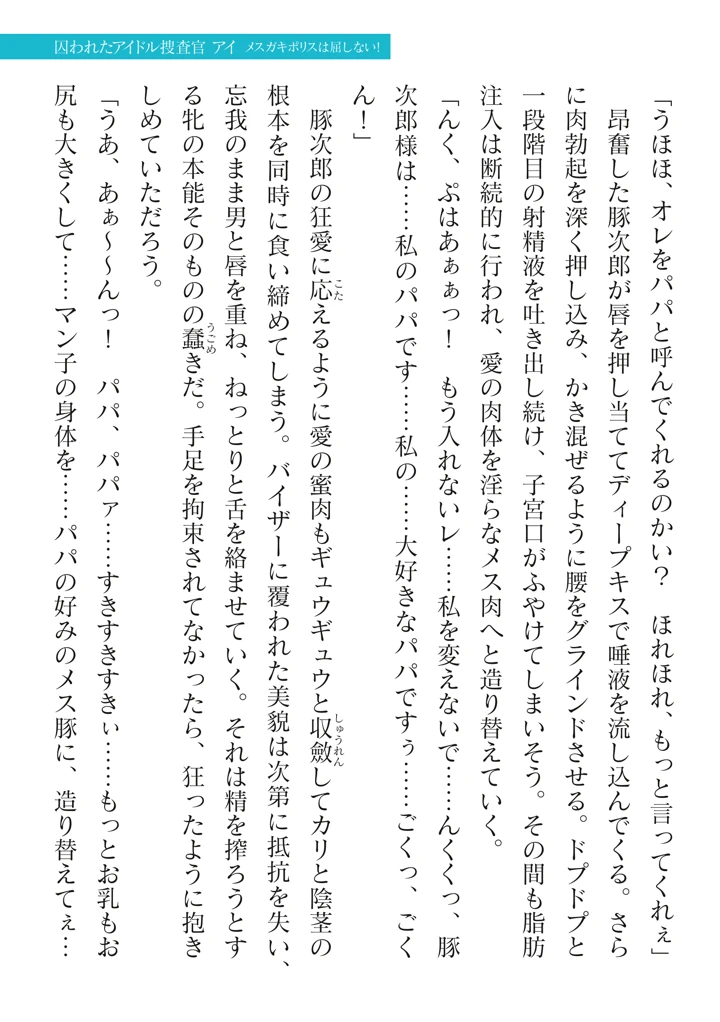 囚われたアイドル捜査官 アイ メスガキポリスは屈しない!
「うほほ、オレをパパと呼んでくれるのかい？　ほれほれ、もっと言ってくれぇ」
　昂奮した豚次郎が唇を押し当ててディープキスで唾液を流し込んでくる。さら
に肉勃起を深く押し込み、かき混ぜるように腰をグラインドさせる。ドプドプと
一段階目の射精液を吐き出し続け、子宮口がふやけてしまいそう。その間も脂肪
注入は断続的に行われ、愛の肉体を淫らなメス肉へと造り替えていく。
「んく、ぷはあぁぁっ！　もう入れないレ……私を変えないで……んくくっ、豚
次郎様は……私のパパです……私の……大好きなパパですぅ……ごくっ、ごく
ん！」
　豚次郎の狂愛に応えるように愛の蜜肉もギュウギュウと収斂してカリと陰茎の
根本を同時に食い締めてしまう。バイザーに覆われた美貌は次第に抵抗を失い、
忘我のまま男と唇を重ね、ねっとりと舌を絡ませていく。それは精を搾ろうとす
る牝の本能そのものの蠢きだ。手足を拘束されてなかったら、狂ったように抱き
しめていただろう。
「うあ、あぁ～～んっ！　パパ、パパァ……すきすきすきぃ……もっとお乳もお
尻も大きくして……マン子の身体を……パパの好みのメス豚に、造り替えてぇ…